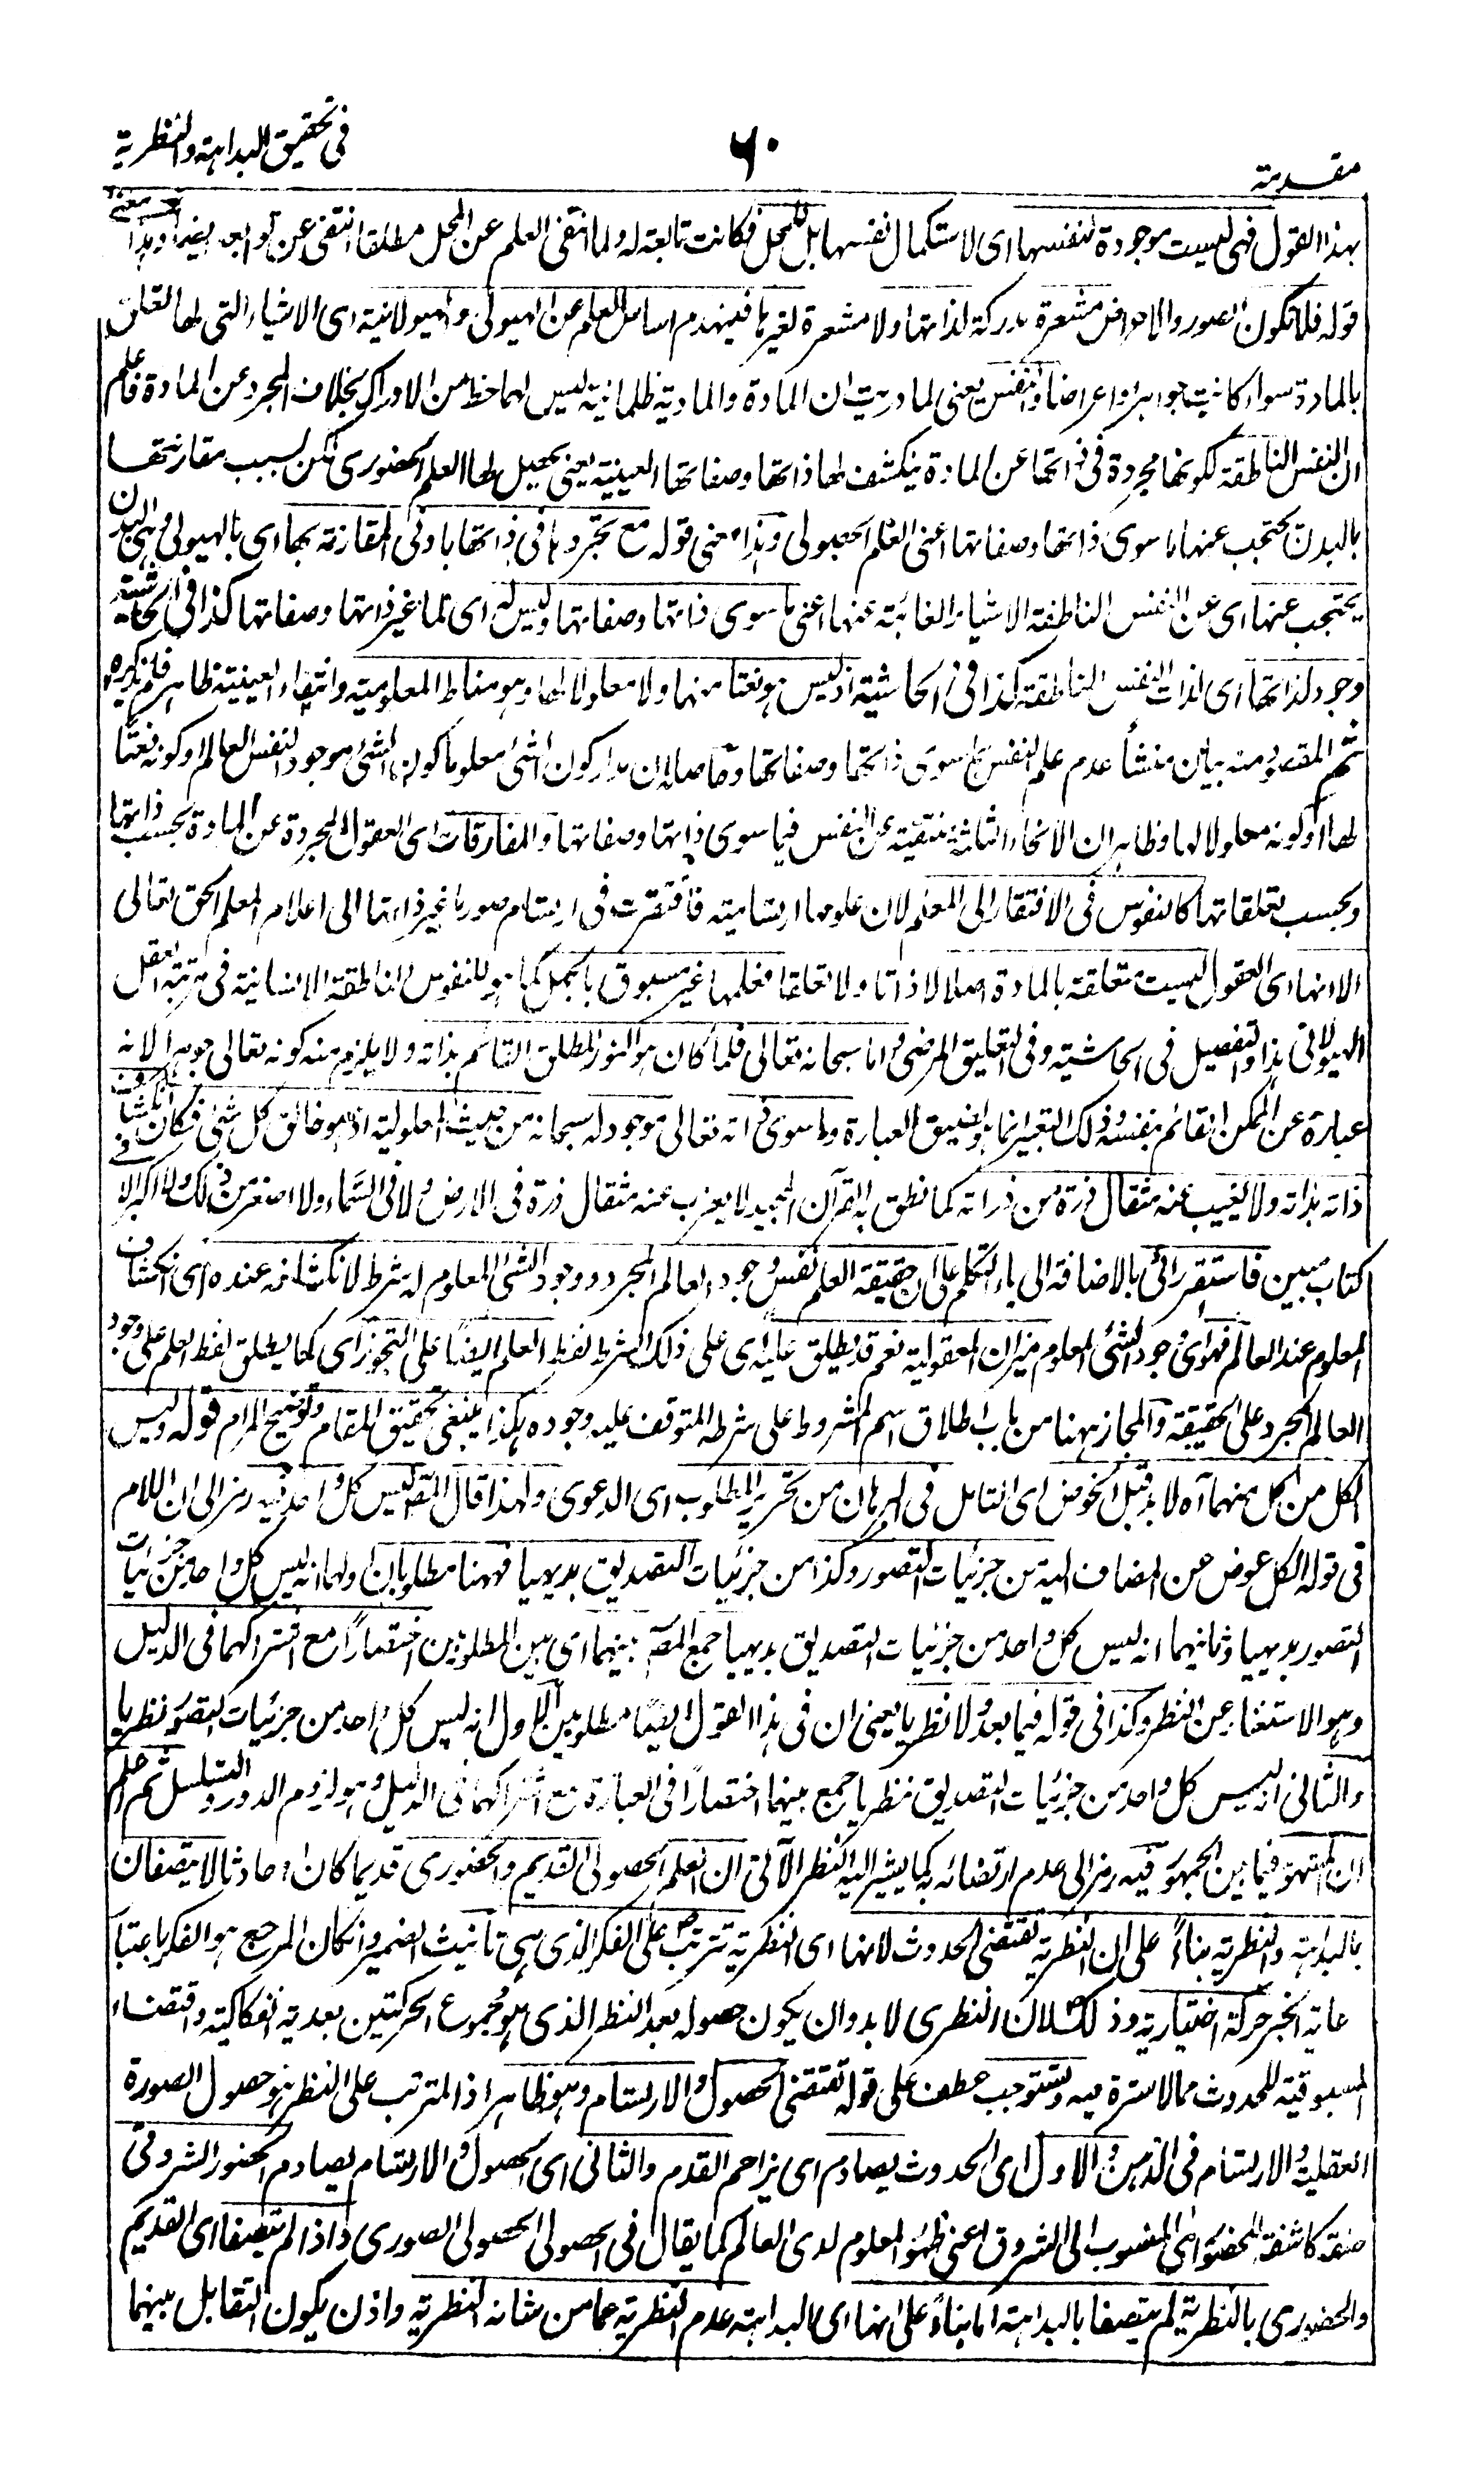 مقدمة ٦٠ في تحقيق البداهة والنظرية
بهذا القول فهى ليست موجودة لنفسها اى لاستكمال نفسها بل للمحل فكانت تابعة له ولما انتفى العلم عن المحل مطلقا انتفى عن توابعه
قوله فلا تكون الصور والاعراض مشعرة مدركة لذاتها ولا مشعرة لغيرها فينهدم اساس العلم عن الهيولى والهيولانية اى الاشياء التى لها تعلق
بالمادة سواء كانت جواهر او اعراضا والنفس يعنى لما دريت ان المادة والمادية ظلمانية ليس لهما حظ من الادراك بخلاف المجرد عن المادة فاعلم
ان النفس الناطقة لكونها مجردة فى ذاتها عن المادة ينكشف لها ذاتها وصفاتها العينية يعنى يحصل لها العلم الحضورى لكن لسبب مقارنتها
بالبدن يحتجب عنها ما سوى ذاتها وصفاتها اعنى العلم الحصولى وهذا معنى قوله مع تجردها فى ذاتها بادنى المقارنة بها اى بالهيولى وهى البدن
يحتجب عنها اى عن النفس الناطقة الاشياء الغائبة عنها اعنى ما سوى ذاتها وصفاتها وليس له اى لما غير ذاتها وصفاتها كذا فى الحاشية
وجود لذاتها اى لذات النفس الناطقة كذا فى الحاشية اذ ليس هو نعتا منها ولا معلولا لها وهو مناط المعلومية وانتفاء العينية ظاهر فلم يذكره
ثم المقصود منه بيان منشأ عدم علم النفس بما سوى ذاتها وصفاتها وحاصله ان مدار كون الشئ معلوما كون الشئ موجودا لنفس العالم او كونه نعتا
لها او كونه معلولا لها وظاهر ان الانحاء الثلاثة منتفية عن النفس فيما سوى ذاتها وصفاتها والمفارقات اى العقول المجردة عن المادة بحسب ذاتها
وبحسب تعلقاتها كالنفوس فى الافتقار الى المعلم لان علومها ارتسامية فافتقرت فى ارتسام صور ما غير ذاتها الى اعلام المعلم الحق تعالى
الا انها اى العقول ليست متعلقة بالمادة اصلا لا ذاتا ولا تعلقا فعلمها غير مسبوق بالجهل كما هو للنفوس الناطقة الانسانية فى مرتبة العقل
الهيولانى هذا والتفصيل فى الحاشية وفى التعليق المرضى اما سبحانه تعالى فلما كان هو النور المطلق القائم بذاته ولا يلزم منه كونه تعالى جوهرا لانه
عبارة عن الممكن القائم بنفسه وذلك التعبير انما هو لضيق العبارة وما سوى ذاته تعالى موجود له سبحانه من حيث المعلولية اذ هو خالق كل شئ فكان
ذاته بذاته ولا يغيب عنه مثقال ذرة من ذراته كما نطق به القرآن المجيد لا يعزب عنه مثقال ذرة فى الارض ولا فى السماء ولا اصغر من ذلك ولا اكبر الا فى
كتاب مبين فاستقر رائى بالاضافة الى ياء المتكلم على ان حقيقة العلم نفس وجود العالم المجرد ووجود الشئ المعلوم له شرط لانكشافه عنده اى انكشاف
المعلوم عند العالم فهو اى وجود الشئ المعلوم ميزان المعقولية نعم قد يطلق عليه اى على ذلك الشرط لفظ العلم ايضا على التجوز اى كما يطلق لفظ العلم على وجود
العالم المجرد على الحقيقة والمجاز ههنا من باب اطلاق اسم المشروط على شرطه المتوقف عليه وجوده هكذا ينبغى تحقيق المقام وتوضيح المرام قوله وليس
الكل من الكل منهما آه لا بد قبل الخوض اى التامل فى البرهان من تحرير المطلوب اى الدعوى ولهذا قال المصـ ليس كل واحد فيه رمز الى ان اللام
فى قوله الكل عوض عن المضاف اليه من جزئيات التصور وكذا من جزئيات التصديق بديهيا فههنا مطلوبان اولهما انه ليس كل واحد من جزئيات
التصور بديهيا وثانيهما انه ليس كل واحد من جزئيات التصديق بديهيا جمع المصـ بينهما اى بين المطلوبين اختصارا مع اشتراكهما فى الدليل
وهو الاستغناء عن النظر وكذا فى قوله فيما بعد ولا نظريا يعنى ان فى هذا القول ايضا مطلوبين الاول انه ليس كل واحد من جزئيات التصور نظريا
والثانى انه ليس كل واحد من جزئيات التصديق نظريا جمع بينهما اختصارا فى العبارة مع اشتراكهما فى الدليل وهو لزوم الدور والتسلسل ثم اعلم
ان المشتهر فيما بين الجمهور فيه رمز الى عدم ارتضائه به كما يشير اليه النظر الآتى ان العلم الحصولى القديم والحضورى قديما كان او حادثا لا يتصفان
بالبداهة والنظرية بناءً على ان النظرية تقتضى الحدوث لانها اى النظرية تترتب على الفكر الذى هى تانيث الضمير وان كان المرجع هو الفكر باعتبار
عاية الخبر حركة اختيارية وذلك لان النظرى لا بد وان يكون حصوله بعد النظر الذى هو مجموع الحركتين بعدية انفكاكية واقتضاء
المسبوقية للحدوث مما لا سترة فيه وتستوجب عطف على قوله تقتضى الحصول والارتسام وهو ظاهر اذ المترتب على النظر هو حصول الصورة
العقلية والارتسام فى الذهن والاول اى الحدوث يصادم اى يزاحم القدم والثانى اى الحصول والارتسام يصادم الحضور الشروقى
صفة كاشفة للحضور اى المنسوب الى الشروق اعنى ظهور المعلوم لدى العالم كما يقال فى الحصولى الحصولى الصورى واذا لم يتصفا اى القديم
والحضورى بالنظرية لم يتصفا بالبداهة اما بناءً على انها اى البداهة عدم النظرية عما من شانه النظرية واذن يكون التقابل بينهما